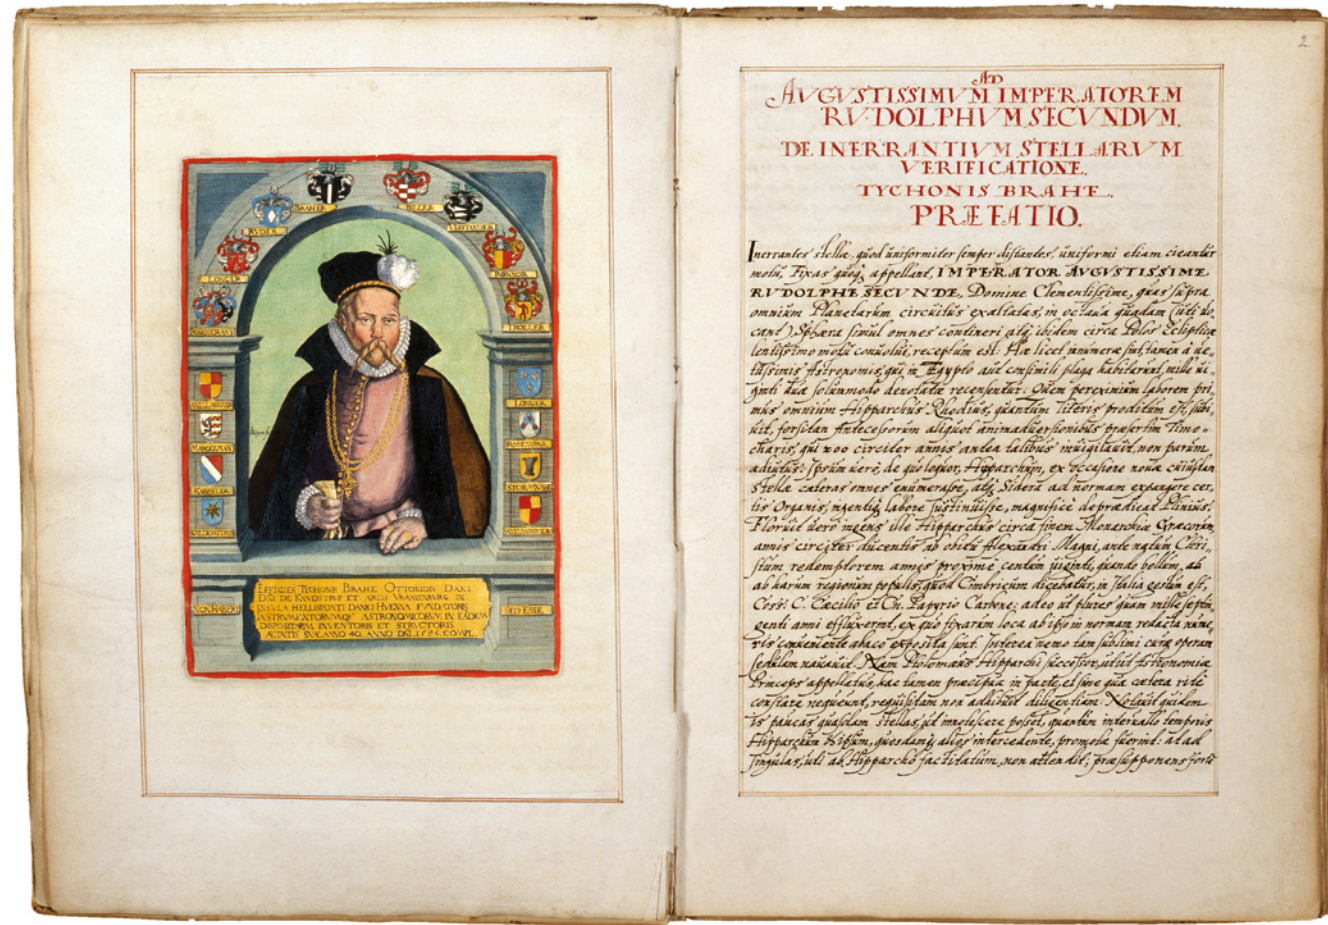 BRAHER
BILLER
RUDIER
LONGER
TROLLER
LONGER
EFFIGIES TYCHONIS BRAHE OTTONIDIS DANI
DNI DE KNVDSTRVP ET ARCIS VRANIENBVRG IN
INSVLA HELLISPONTI DANICI HVENNA FVNDATORIS
INSTRVMENTORVMQ ASTRONOMICORVM IN EADEM
DISPOSITORVM INVENTORIS ET STRVCTORIS
ÆTATIS SVÆ ANNO 40. ANNO DNI 1586. COMPL.
2
AD
AVGVSTISSIMVM IMPERATOREM
RVDOLPHVM SECVNDVM.
DE INERRANTIVM STELLARVM
VERIFICATIONE.
TYCHONIS BRAHE.
PRÆFATIO.
Inerrantes stellæ, quod uniformiter semper distantes, uniformi etiam cieantur
motu, Fixas quoq; appellant, IMPERATOR AVGVSTISSIME
RVDOLPHE SECVNDE, Domine Clementissime, quas supra
omnium Planetarum circuitus exaltatas, in octaua quadam (uti uo,
cant) Sphæra simul omnes contineri atq; ibidem circa Polos Eclipticæ
lentissimo motu conuolui, receptum est. Hæ licet innumeræ sint, tamen à ue,,
tustissimis Astronomis, qui in Ægypto aut consimili plaga habitarunt, mille ui,
ginti duæ solummodo denotatæ recensentur. Quem pereximium laborem pri,
mus omnium Hipparchus Rhodius, quantum literis proditum est, subi,
uit, forsitan Antecessorum aliquot animaduersionibus præsertim Timo,
charis, qui 200 circiter annis antea talibus inuigilauit, non parum
adiutus. Ipsum uerò, de quo loquor, Hipparchum, ex occasione nouæ cuiusdam
Stellæ cæteras omnes enumerasse, atq; Sidera ad normam expangere cer,
tis Organis, ingentiq; labore sustinuisse, magnificè deprædicat Plinius.
Floruit uerò ingens ille Hipparchus circa finem Monarchiæ Græcorum,
annis circiter ducentis ab obitu Alexandri Magni, ante natum Chri,,
stum redemptorem annos proximè centum uiginti, quando bellum, ab
ab harum regionum populis, quod Cimbricum dicebatur, in Italia gestum est,
Coss: C. Cæcilio et Cn. Papyrio Carbone: adeo ut plures quam mille septin,
genti anni effluxerint, ex quo fixarum loca ab ipso in normam redacta nume,
ris conueniente abaco exposita sunt. Interea nemo tam sublimi curæ operam
sedulam nauauit. Nam Ptolomæus Hipparchi successor, utut Astronomiæ
Princeps appellatus, hac tamen præcipua in parte, et sine qua cætera ritè
constare nequeunt, requisitam non adhibuit diligentiam. Notauit quidem
is paucas quasdam stellas, ut innotescere posset, quantum interuallo temporis
Hipparchum & ipsum, quosdamq; alios intercedente, promotæ fuerint: at ad
singulas, uti ab Hipparcho factitatum, non attendit; præsupponens forte